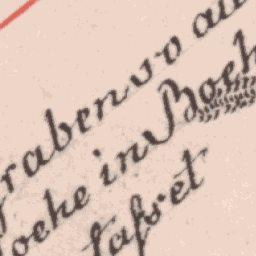 raben so au
oche in Boch
tasset